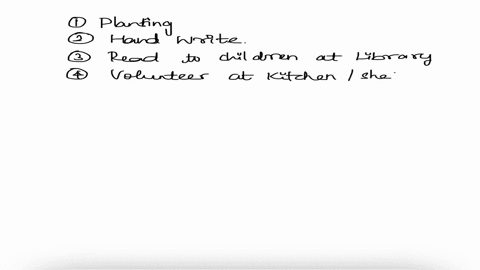 ① Planting
② Hand Write.
③ Read to children at Library
④ Volunteer at Kitchen / she